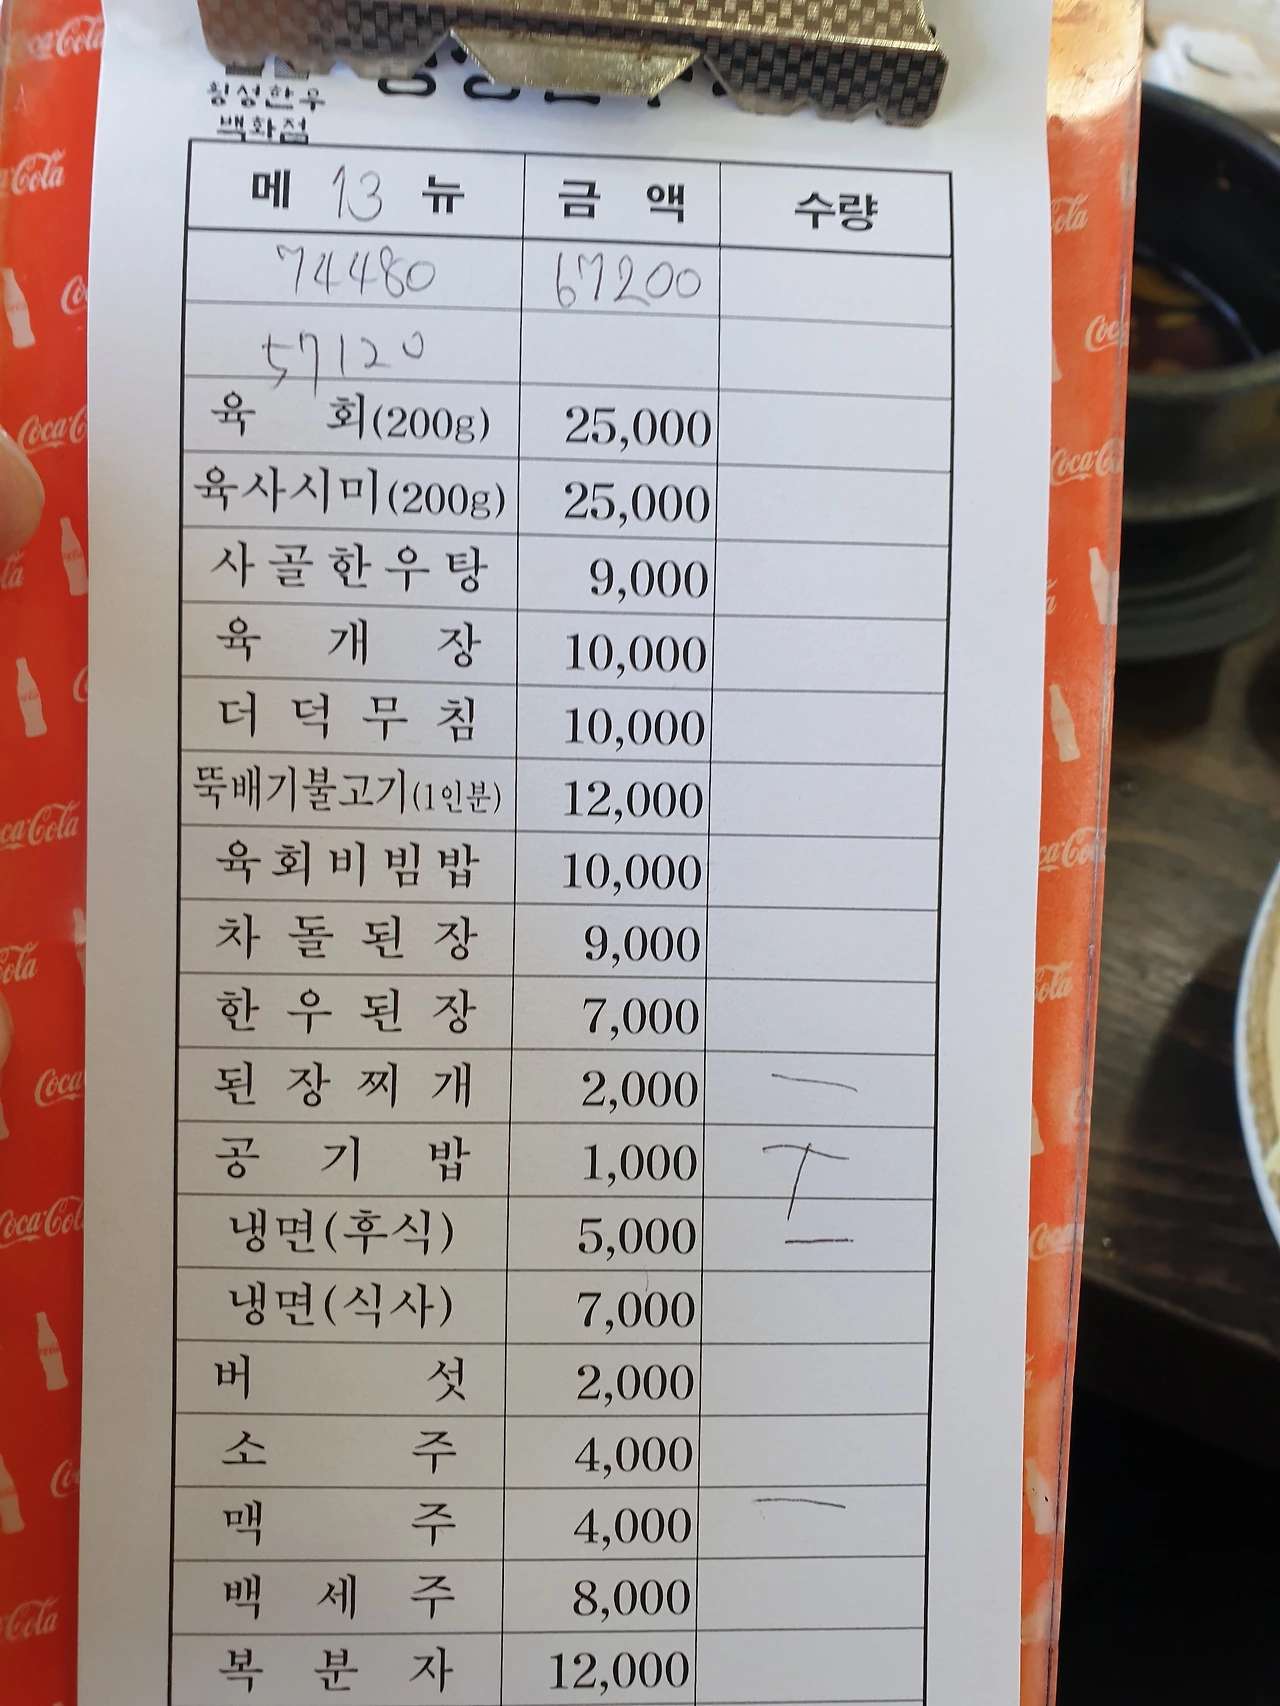 횡성한우
백화점
메 13 뉴 금 액 수량
74480 67200
57120
육 회(200g) 25,000
육사시미(200g) 25,000
사골한우탕 9,000
육 개 장 10,000
더 덕 무 침 10,000
뚝배기불고기(1인분) 12,000
육회비빔밥 10,000
차 돌 된 장 9,000
한 우 된 장 7,000
된 장 찌 개 2,000 一
공 기 밥 1,000 丅
냉면(후식) 5,000 一
냉면(식사) 7,000
버 섯 2,000
소 주 4,000
맥 주 4,000 一
백 세 주 8,000
복 분 자 12,000
Coca-Cola